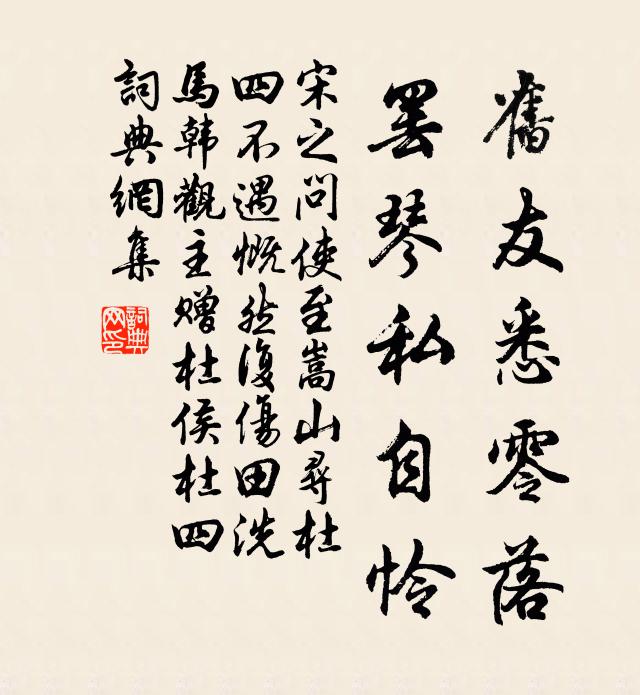 舊友悉零落
罷琴私自怜
宋之问使至嵩山尋杜
四不遇慨然復傷田洗
馬韩觀主贈杜侯杜四
詞典網集
詞典
网印